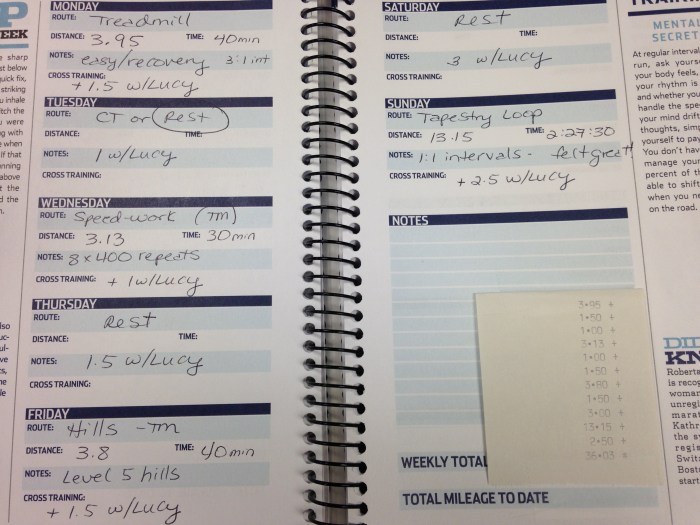 P
EEK
sharp
st below
quick fix,
striking
u inhale
tch the
u were
g with
e when
If that
nning
above
t the
d the
n.
lso
uc-
ul-
ve
s,
he
le
MONDAY
ROUTE: Treadmill
DISTANCE: 3.95 TIME: 40min
NOTES: easy/recovery 3:1 int
CROSS TRAINING:
+ 1.5 w/Lucy
TUESDAY
ROUTE: CT or Rest
DISTANCE: TIME:
NOTES: 1 w/Lucy
CROSS TRAINING:
WEDNESDAY
ROUTE: Speed-work (TM)
DISTANCE: 3.13 TIME: 30min
NOTES: 8x400 repeats
CROSS TRAINING: + 1 w/Lucy
THURSDAY
ROUTE: Rest
DISTANCE: TIME:
NOTES: 1.5 w/Lucy
CROSS TRAINING:
FRIDAY
ROUTE: Hills - TM
DISTANCE: 3.8 TIME: 40min
NOTES: Level 5 hills
CROSS TRAINING:
+ 1.5 w/Lucy
SATURDAY
ROUTE: Rest
DISTANCE: TIME:
NOTES: 3 w/Lucy
CROSS TRAINING:
SUNDAY
ROUTE: Tapestry Loop
DISTANCE: 13.15 TIME: 2:27:30
NOTES: 1:1 intervals - felt great!
CROSS TRAINING:
+ 2.5 w/Lucy
NOTES
3.95 +
1.50 +
1.00 +
3.13 +
1.00 +
1.50 +
3.80 +
1.50 +
3.00 +
13.15 +
2.50 +
36.03 *
WEEKLY TOTAL
TOTAL MILEAGE TO DATE
MENTAL
SECRET
At regular interval
run, ask yourse
your body feels,
your rhythm is
and whether you
handle the spe
your mind drift
thoughts, simp
yourself to pay
You don't hav
manage your
percent of th
able to shift
when you ne
on the road.
DID
KN
Roberta
is recog
woman
unregi
marat
Kathr
the s
regis
Swit
Bost
start